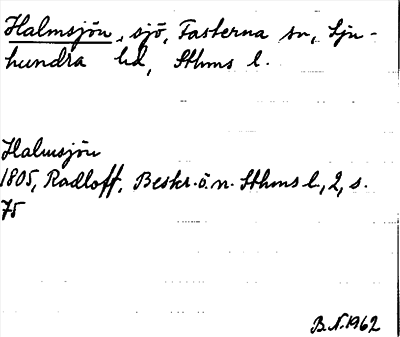 Halmsjön, sjö, Fasterna sn, Sju-
hundra hd, Sthms l.
Halmsjön
1805, Radloff, Beskr. ö. n. Sthms l, 2, s.
75
B.N. 1962